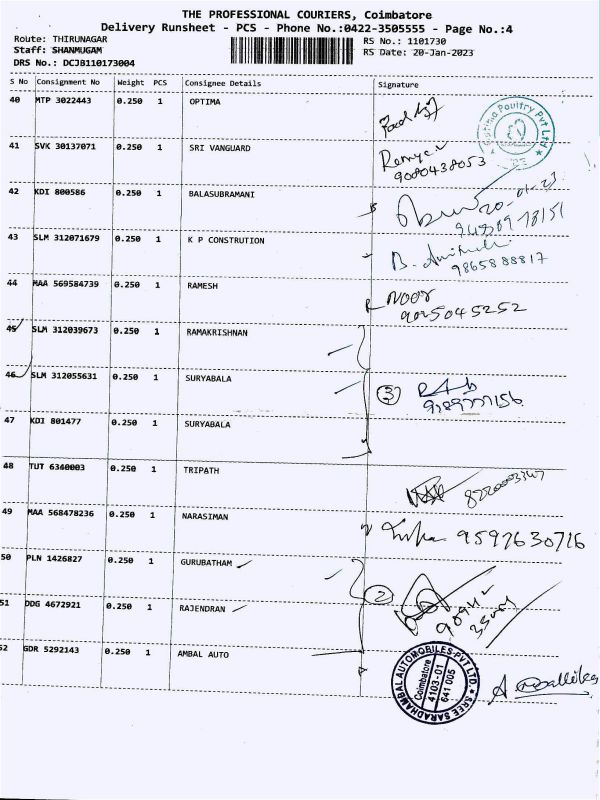 THE PROFESSIONAL COURIERS, Coimbatore
Delivery Runsheet - PCS - Phone No.:0422-3505555 - Page No.:4
Route: THIRUNAGAR
Staff: SHANMUGAM
DRS No.: DCJB110173004
RS No.: 1101730
RS Date: 20-Jan-2023
S No Consignment No Weight PCS Consignee Details Signature
40 MTP 3022443 0.250 1 OPTIMA
Optima Poultry Pvt Ltd
41 SVK 30137071 0.250 1 SRI VANGUARD
9080438053
42 KDI 800586 0.250 1 BALASUBRAMANI
20-01-23
43 SLM 312071679 0.250 1 K P CONSTRUTION
9865888817
44 MAA 569584739 0.250 1 RAMESH
Noor
9025045252
45 SLM 312039673 0.250 1 RAMAKRISHNAN
46 SLM 312055631 0.250 1 SURYABALA
3
47 KDI 801477 0.250 1 SURYABALA
48 TUT 6340003 0.250 1 TRIPATH
49 MAA 568478236 0.250 1 NARASIMAN
9597630716
50 PLN 1426827 0.250 1 GURUBATHAM
2
51 DDG 4672921 0.250 1 RAJENDRAN
52 GDR 5292143 0.250 1 AMBAL AUTO
SREE SARADHAMBAL AUTOMOBILES PVT LTD
Coimbatore
4103-01
641 005